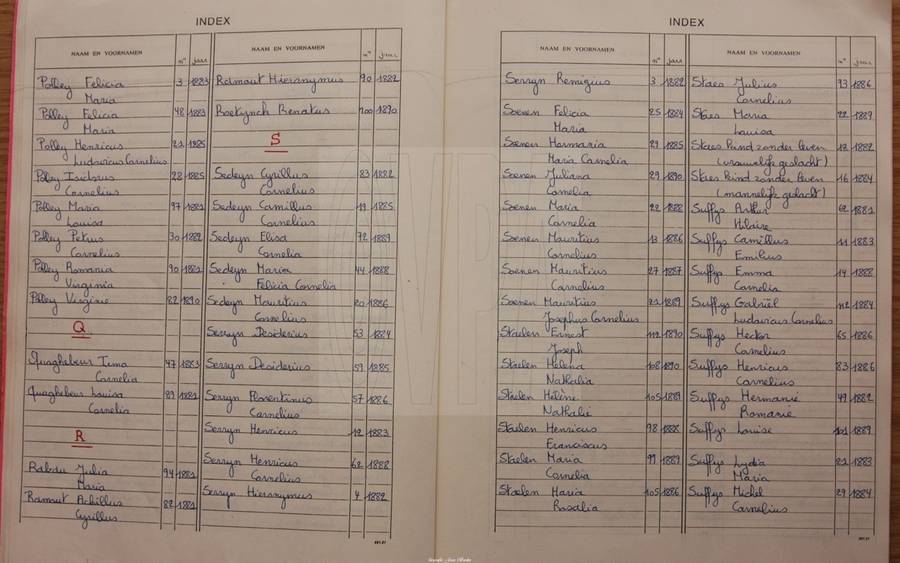 INDEX
NAAM EN VOORNAMEN n° jaar
Polley Felicia 3 1883
Maria
Polley Felicia 48 1883
Maria
Polley Henricus 21 1885
Ludovicus Cornelius
Polley Isidorus 28 1885
Cornelius
Polley Maria 97 1881
Louisa
Polley Petrus 30 1882
Cornelius
Polley Romania 90 1881
Virginia
Polley Virginie 82 1890
Q
Quaghebeur Irma 47 1883
Cornelia
Quaghebeur Louisa 89 1881
Cornelia
R
Julia 94 1881
Maria
Ramaut Achillus 82 1881
Cyrillus
NAAM EN VOORNAMEN n° jaar
Ramaut Hieronymus 90 1882
Renatus 100 1890
S
Sedeyn Cyrillus 83 1882
Cornelius
Sedeyn Camillus 19 1885
Cornelius
Sedeyn Elisa 72 1889
Cornelia
Sedeyn Maria 44 1888
Felicia Cornelia
Sedeyn Mauritius 20 1886
Cornelius
Serryn Desiderius 53 1884
Serryn Desiderius 59 1885
Serryn Florentinus 57 1886
Cornelius
Serryn Henricus 12 1883
Serryn Henricus 62 1888
Cornelius
Serryn Hieronymus 4 1882
INDEX
NAAM EN VOORNAMEN n° jaar
Serryn Remigius 3 1882
Soenen Felicia 25 1884
Maria
Soenen 29 1885
Maria Cornelia
Soenen Juliana 29 1890
Cornelia
Soenen Maria 22 1888
Cornelia
Soenen Mauritius 13 1886
Cornelius
Soenen Mauritius 27 1887
Cornelius
Soenen Mauritius 21 1889
Josephus Cornelius
Staelen Ernest 112 1890
Joseph
Staelen Helena 108 1890
Nathalia
Staelen Hélène 105 1889
Nathalie
Staelen Henricus 98 1888
Franciscus
Staelen Maria 99 1889
Cornelia
Staelen Maria 105 1886
Rosalia
NAAM EN VOORNAMEN n° jaar
Staes Julius 93 1886
Cornelius
Staes Maria 22 1889
Louisa
Staes Kind zonder leven 18 1882
(vrouwelijk geslacht)
Staes Kind zonder leven 16 1884
(mannelijk geslacht)
Suffys Arthur 62 1881
Hilaire
Suffys Camillus 11 1883
Emilius
Suffys Emma 14 1888
Cornelia
Suffys Gabriël 112 1884
Ludovicus Cornelius
Suffys Hector 65 1886
Cornelius
Suffys Henricus 83 1886
Cornelius
Suffys Hermanie 49 1882
Romanie
Suffys Louise 101 1889
Suffys Lydia 21 1883
Maria
Suffys Michel 29 1884
Cornelius